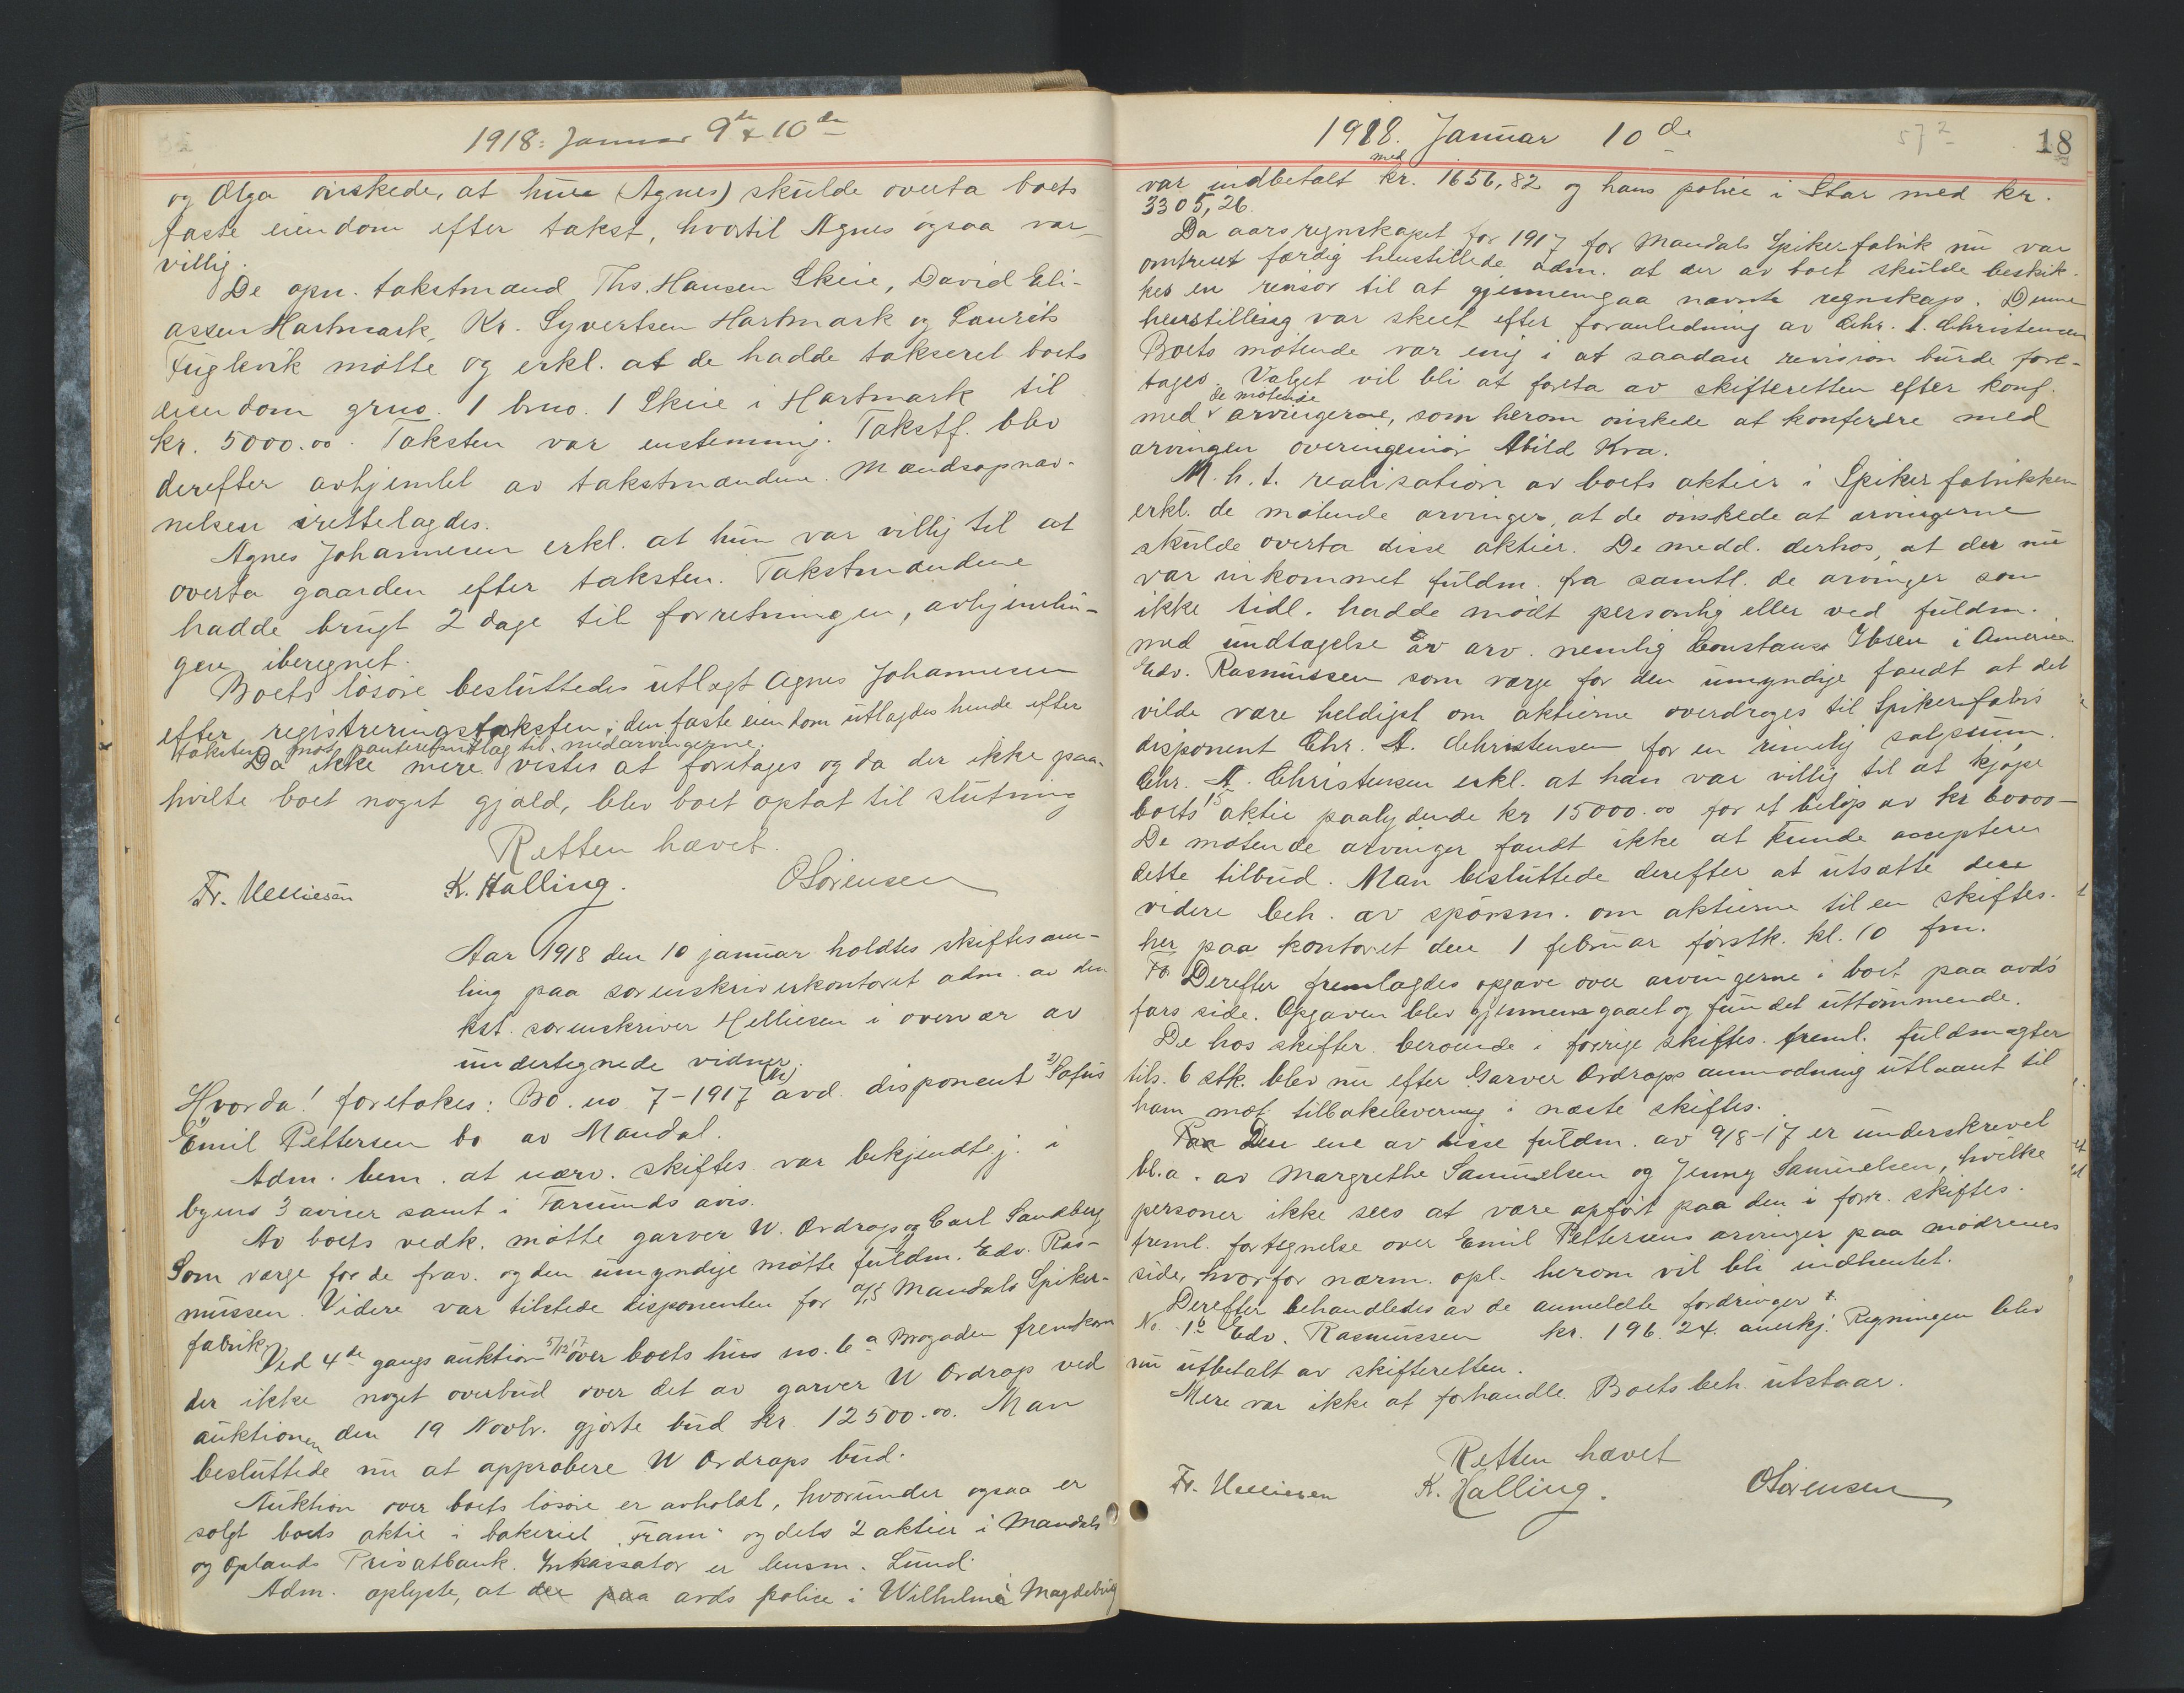 1918: Januar 9de & 10de
og Olga ønskede, at hun (Agnes) skulde overta boets
faste eiendom efter takst, hvortil Agnes ogsaa var
villig.
De opn. takstmænd Ths. Hansen Skeie, David Eli-
assen Hartmark, Kr. Syvertsen Hartmark og Laurits
Fuglevik møtte og erkl. at de hadde takseret boets
eiendom grno. 1 brno. 1 Skeie i Hartmark til
kr. 5000.00. Taksten var enstemmig. Takstf. blev
derefter avhjemlet av takstmændene. Mændsopnæv-
nelsen irettelagdes.
Agnes Johannesen erkl. at hun var villig til at
overta gaarden efter taksten. Takstmændene
hadde brugt 2 dage til forretningen, avhjemlin-
gen iberegnet.
Boets løsøre besluttedes utlagt Agnes Johannesen
efter registreringstaksten; den faste eiendom utlagdes hende efter
taksten mot panteretutlæg til medarvingerne.
Da ikke mere vistes at foretages og da der ikke paa-
hvilte boet noget gjæld, blev boet optat til slutning
Retten hævet.
Fr. Helliesen K. Halling. OSørensen
Aar 1918 den 10 januar holdtes skiftesam-
ling paa sorenskriverkontoret adm. av den
kst. sorenskriver Helliesen i overvær av
undertegnede vidner.
Hvorda! foretokes: Bo. no 7-1917 (M) avd. disponent 2) Sofus
1) Emil Pettersen bo av Mandal.
Adm. bem. at nærv. skiftes. var bekjendtgj. i
byens 3 aviser samt i Farsunds avis.
Av boets vedk. møtte garver W. Ordrop og Carl Sandberg
Som værge for de frav. og den umyndige møtte fuldm. Edv. Ras-
mussen. Videre var tilstede disponenten for a/s Mandals Spiker-
fabrik.
Ved 4de gangs auktion 5/12 17 over boets hus no. 6a Brogaden fremkom
der ikke noget overbud over det av garver W Ordrop ved
auktionen den 19 Novbr. gjorte bud kr. 12500.00. Man
besluttede nu at approbere W Ordrops bud.
Auktion over boets løsøre er avholdt, hvorunder ogsaa er
solgt boets aktie i bakeriet "Fram" og dets 2 aktier i Mandals
og Oplands Privatbank. Inkassator er lensm. Lund.
Adm. oplyste, at der paa avds police i Wilhelma i Magdeburg
1918. Januar 10de
572
18
var indbetalt med kr. 1656,82 og hans police i Star med kr.
3305,26.
Da aarsregnskapet for 1917 for Mandals Spikerfabrik nu var
omtrent færdig henstillede adm. at der av boet skulde beskik-
kes en revisor til at gjennemgaa nævnte regnskap. Denne
henstilling var skeet efter foranledning av Chr. A. Christensen
Boets møtende var enig i at saadan revision burde fore-
tages. Valget vil bli at foreta av skifteretten efter konf.
med de møtende arvingerne, som herom ønskede at konferere med
arvingen overingeniør Abild Kra.
M.h.t. realisation av boets aktier i Spikerfabrikken
erkl. de møtende arvinger, at de ønskede at arvingerne
skulde overta disse aktier. De medd. derhos, at der nu
var inkommet fuldm. fra samtl. de arvinger som
ikke tidl. hadde mødt personlig eller ved fuldm.
med undtagelse av arv. nemlig Constanse Ibsen i America
Edv. Rasmussen som værge for den umyndige fandt at det
vilde være heldigst om aktierne overdroges til Spikerfabr's
disponent Chr. A. Christensen for en rimelig salgssum.
Chr. A. Christensen erkl. at han var villig til at kjøpe
boets 15 aktie paalydende kr 15000.00 for et beløp av kr 60000-
De møtende arvinger fandt ikke at kunde acceptere
dette tilbud. Man besluttede derefter at utsætte den
videre beh. av spørsm. om aktierne til en skiftes.
her paa kontoret den 1 februar førstk. kl. 10 fm.
Fo Derefter fremlagdes opgave over arvingerne i boet paa avds
fars side. Opgaven blev gjennemgaaet og fundet uttømmende.
De hos skifter. beroende i forrige skiftes. freml. fuldmagter
tils. 6 stk. blev nu efter Garver Ordrops anmodning utlaant til
ham mot tilbakelevering i næste skiftes.
Paa Den ene av disse fuldm. av 9/8-17 er underskrevet
bl.a. av Margrethe Samuelsen og Jenny Samuelsen, hvilke
personer ikke sees at være opført paa den i forr. skiftes.
freml. fortegnelse over Emil Pettersens arvinger paa mødrenes
side, hvorfor nærm. opl. herom vil bli indhentet.
Derefter behandledes av de anmeldte fordringer:
No. 1b Edv. Rasmussen kr. 196.24. anerkj. Regningen blev
nu utbetalt av skifteretten.
Mere var ikke at forhandle. Boets beh. utstaar.
Retten hævet
Fr. Helliesen K. Halling. OSørensen